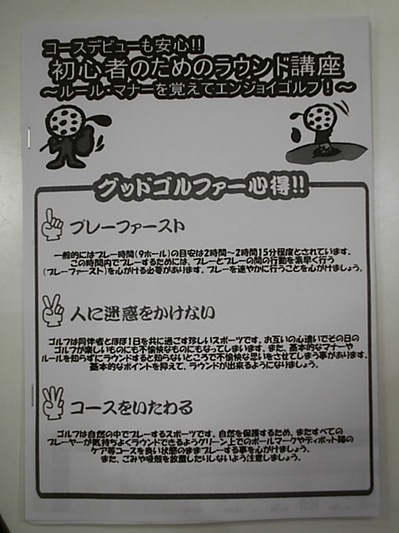 コースデビューも安心!!
初心者のためのラウンド講座
～ルール・マナーを覚えてエンジョイゴルフ！～
グッドゴルファー心得!!
プレーファースト
一般的にはプレー時間(9ホール)の目安は2時間～2時間15分程度とされています。
この時間内でプレーするためには、プレーとプレーの間の行動を素早く行う
(プレーファースト)を心がける必要があります。プレーを速やかに行うことを心がけましょう。
人に迷惑をかけない
ゴルフは同伴者とほぼ1日を共に過ごす珍しいスポーツです。お互いの心遣いでその日の
ゴルフが楽しいものにも不愉快なものにもなってしまいます。また、基本的なマナーや
ルールを知らずにラウンドすると知らないところで不愉快な思いをさせてしまう事があります。
基本的なポイントを抑えて、ラウンドが出来るようになりましょう。
コースをいたわる
ゴルフは自然の中でプレーするスポーツです。自然を保護するため、またすべての
プレーヤーが気持ちよくラウンドできるようグリーン上でのボールマークやディボット跡の
ケア等コースを良い状態のままプレーする事を心がけましょう。
また、ごみや吸殻を放置したりしないよう注意しましょう。